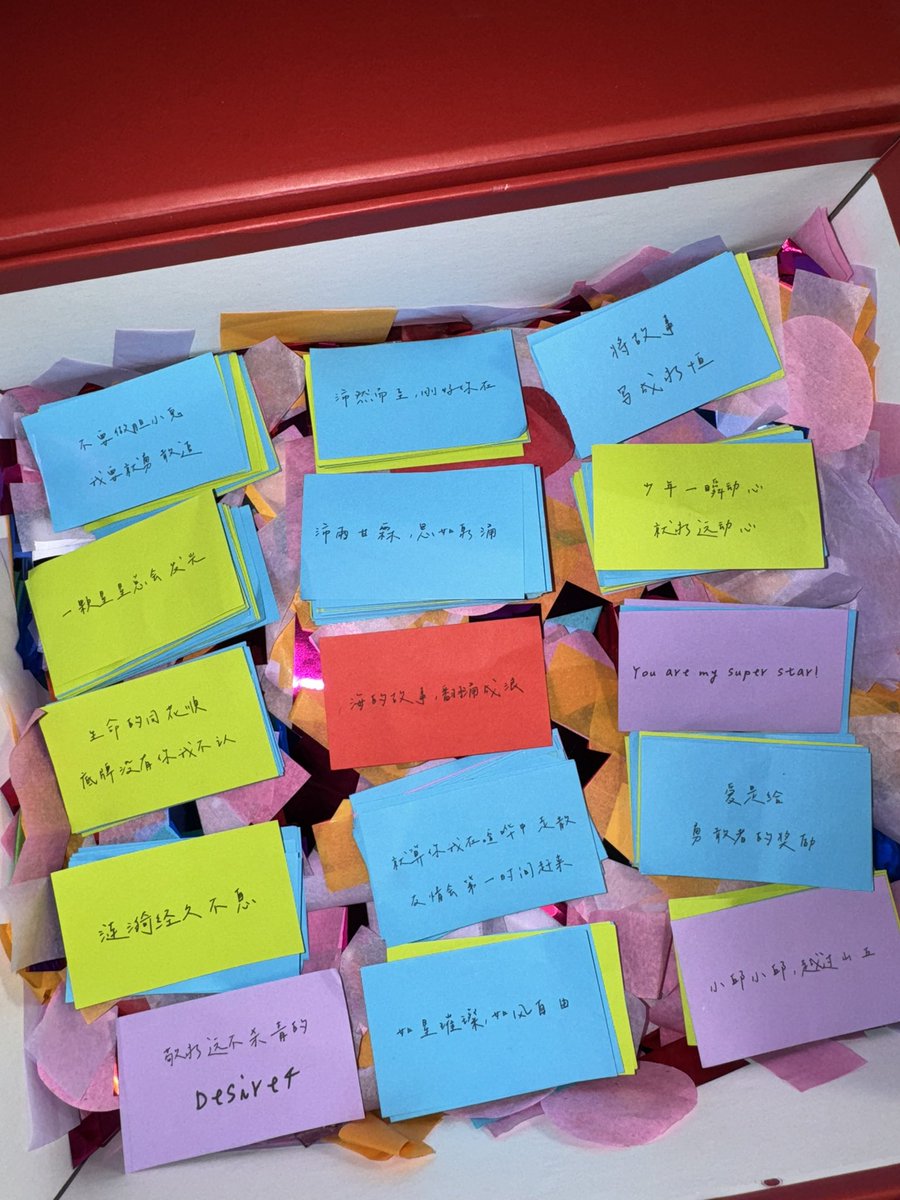 不要做胆小鬼
我要就勇敢追
沛然而至，刚好你在
将故事
写成永恒
一颗星星总会发光
沛雨甘霖，思如新涌
少年一瞬动心
就永远动心
生命的同花顺
底牌没有你我不认
海的故事，翻涌成浪
You are my super star!
涟漪经久不息
就算你我在喧哗中走散
友情会第一时间赶来
爱是给
勇敢者的奖励
敬永远不杀青的
Desire4
如星璀璨，如风自由
小邱小邱，越过山丘